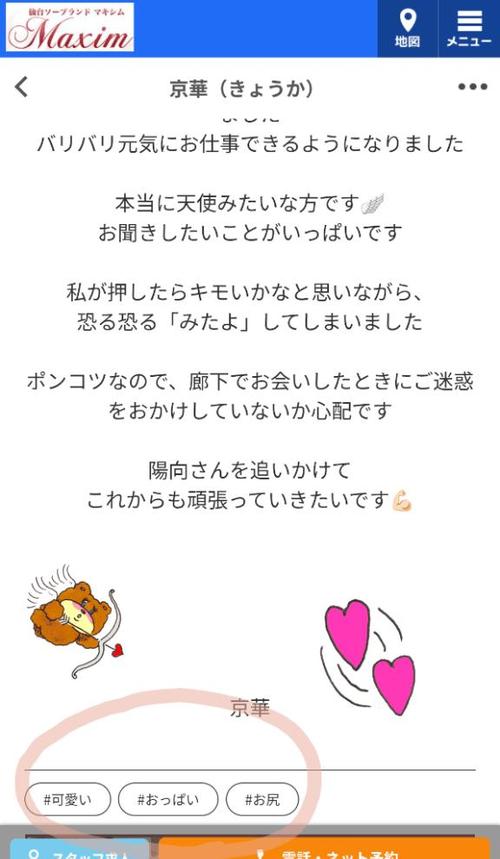 仙台ソープランド マキシム
Maxim
地図
メニュー
京華（きょうか）
ました
バリバリ元気にお仕事できるようになりました
本当に天使みたいな方です🪽
お聞きしたいことがいっぱいです
私が押したらキモいかなと思いながら、
恐る恐る「みたよ」してしまいました
ポンコツなので、廊下でお会いしたときにご迷惑
をおかけしていないか心配です
陽向さんを追いかけて
これからも頑張っていきたいです💪🏻
京華
#可愛い
#おっぱい
#お尻
スタッフ求人
電話・ネット予約